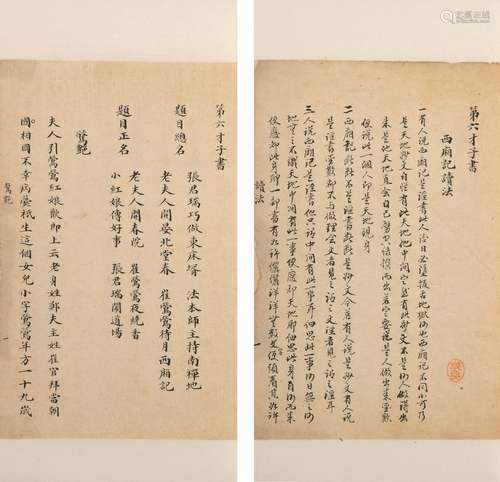 第六才子書
西廂記讀法
一有人說西廂記是淫書此人後日必墮拔舌地獄何也西廂記不同小可乃
是天地妙文自從有此天地他中間定然有此妙文不是何人做得出
來是他天地直會自己劈空結撰而出若定要說是人做出來聖歎
便說此一個人即是天地現身
二西廂記斷斷不是淫書斷斷是妙文今後若有人說是妙文有人說
是淫書聖歎都不與做理會文者見之謂之文淫者見之謂之淫耳
三人說西廂記是淫書他只為中間有此一事耳細思此一事何日無之何
地無之不成天地中間有此一事便廢卻天地耶細思此身自何而來
便廢卻此身耶一部書有如許灑灑洋洋無數文字便須看其如許
讀法
第六才子書
題目總名
張君瑞巧做東床婿 法本師主持南禪地
老夫人開宴北堂春 崔鶯鶯待月西廂記
題目正名
老夫人開春院 崔鶯鶯夜燒香
小紅娘傳好事 張君瑞鬧道場
驚艷
夫人引鶯鶯紅娘歡郎上云老身姓鄭夫主姓崔官拜當朝
國相因不幸病薨祇生這個女兒小字鶯鶯年方一十九歲
驚艷